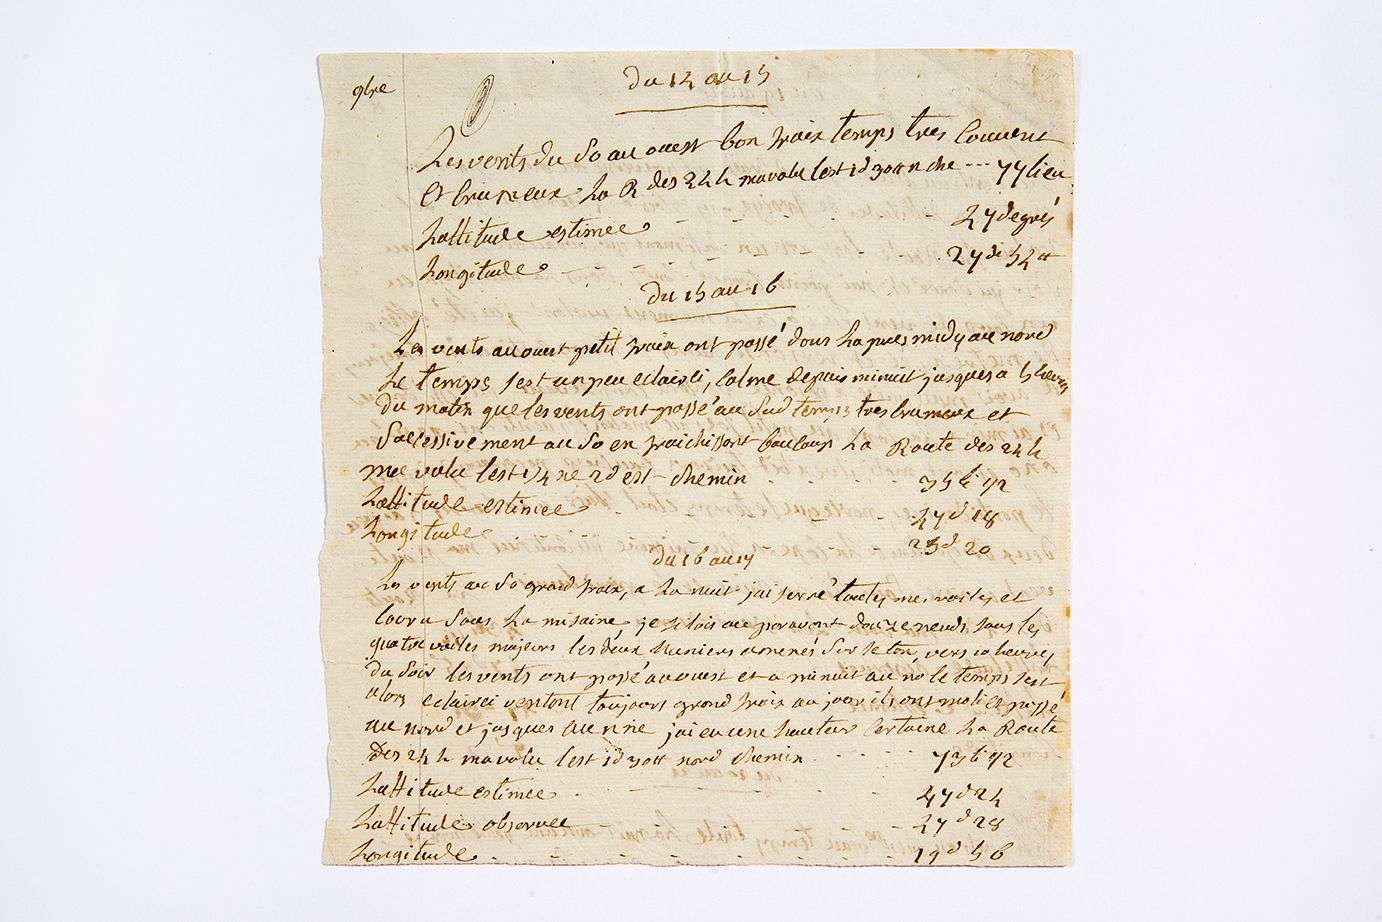 9bre
du 14 au 15
Les vents du So au ouest bon fraix temps tres couvert
et brumeux La R des 24 h ma valu lest 1d 30 m n che --- 77 lieu
Lattitude estimée 47 degrés
Longitude 27 d 54 m
du 15 au 16
Les vents au ouest petit fraix ont passé dans La pres midy au nord
Le temps sest un peu eclairci, calme depuis minuit jusques a 5 heures
du matin que les vents ont passé au Sud temps tres brumeux et
Successivement au So en fraichissant baucoup La Route des 24 h
mee valu lest 1/4 ne 2d est chemin 35 li 1/2
Lattitude estimée 47 d 18
Longitude 25 d 20
du 16 au 17
Les vents au So grand fraix, a La nuit jai serré toutes mes voiles et
couru Sous La misaine je filois au paravant douze neuds sous les
quatre voiles majeurs les deux huniers amenés Sur le ton, vers 10 heures
du Soir les vents ont passé au ouest et a minuit au no le temps sest
alors eclairci ventant toujours grand fraix au jour ils ont moli et passé
au nord et jusques au nne jai eu une hauteur certaine La Route
Des 24 h ma valu lest 1d 30 m nord chemin 73 li 1/2
Lattitude estimée 47 d 24
Lattitude observée 47 d 28
Longitude 19 d 56